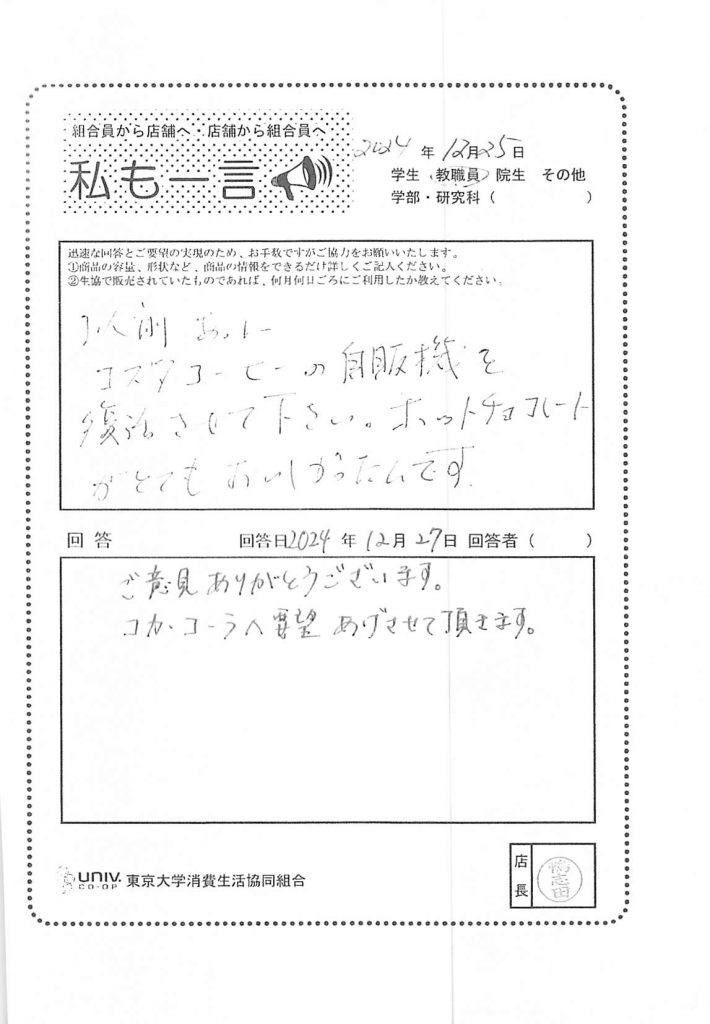 組合員から店舗へ・店舗から組合員へ
私も一言
2024 年 12月25日
学生 教職員 院生 その他
学部・研究科 (　　　)
迅速な回答とご要望の実現のため、お手数ですがご協力をお願いいたします。
①商品の容量、形状など、商品の情報をできるだけ詳しくご記入ください。
②生協で販売されていたものであれば、何月何日ごろにご利用したか教えてください。
以前あった
コスタコーヒーの自販機を
復活させて下さい。ホットチョコレート
がとてもおいしかったんです
回答 回答日2024 年 12月 27日 回答者 (　　　)
ご意見ありがとうございます。
コカ・コーラへ要望あげさせて頂きます。
UNIV. CO-OP 東京大学消費生活協同組合
店長
鴨志田